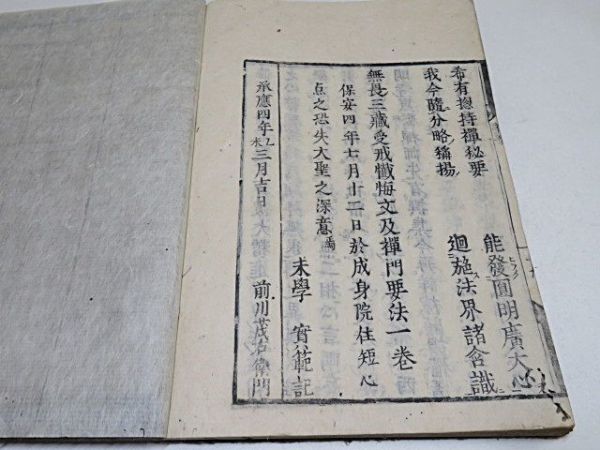 希有捴持禪秘要 能發圓明廣大心
我今隨分略稱揚 迴施法界諸含識
無畏三藏受戒懺悔文及禪門要法一卷
保安四年七月廿二日於成身院住短心
点之恐失大聖之深意焉
末學 實範記
承應四年乙未三月吉日 前川茂右衛門